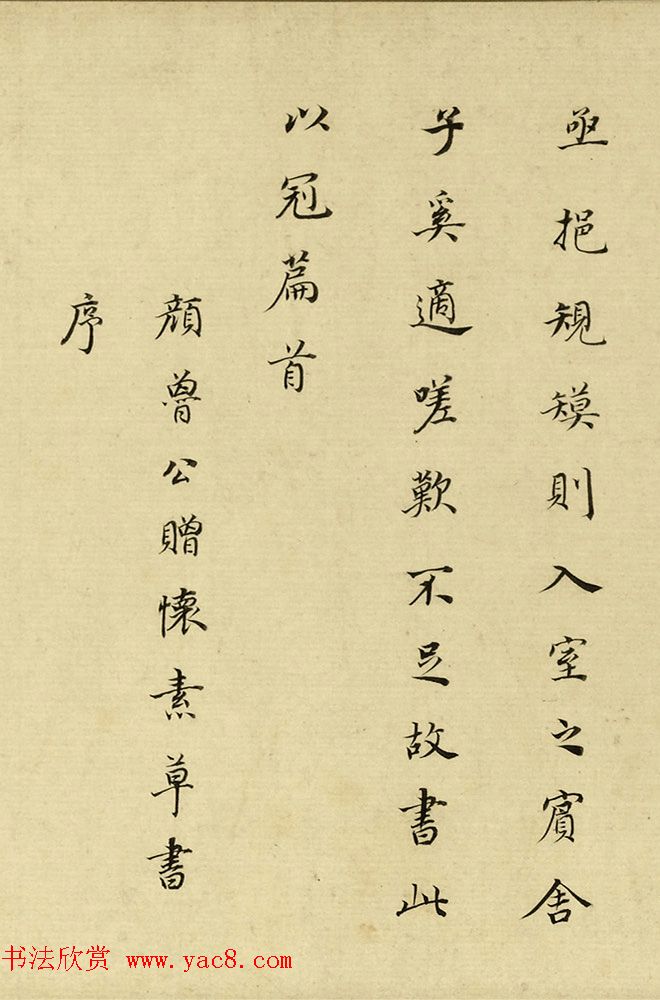 亟挹規模則入室之賓舍
子奚適嗟歎不足故書此
以冠篇首
顏魯公贈懷素草書
序
书法欣赏 www.yac8.com